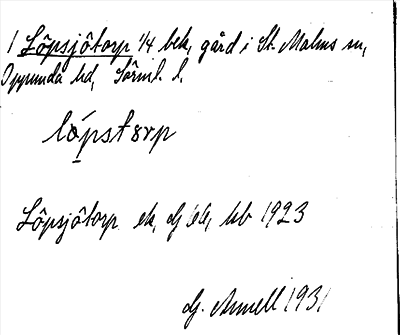 1 Löpsjötorp 1/4 bek, gård i St. Malms sn,
Oppunda hd, Sörml. l.
lópstørp
Löpsjötorp ek, dj bb 1923
dj. Annell 1931